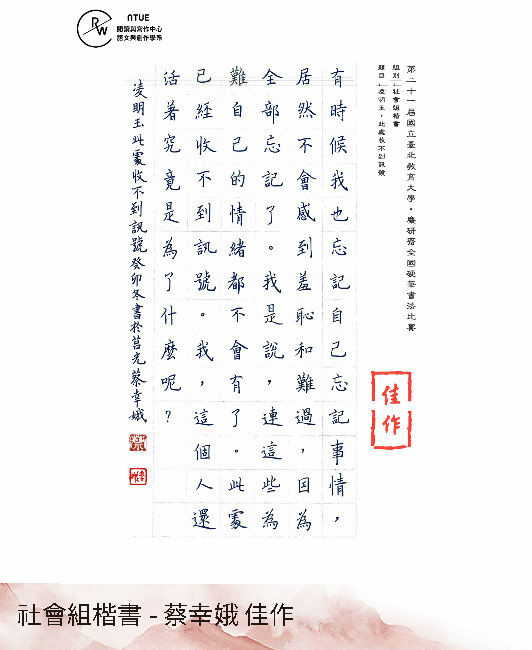 NTUE
閱讀與寫作中心
語文與創作學系
RW
第二十一屆國立臺北教育大學・癢研齋全國硬筆書法比賽
組別:社會組楷書
題目:凌明玉・此處收不到訊號
有時候我也忘記自己忘記事情,
居然不會感到羞恥和難過,因為
全部忘記了。我是說,連這些為
難自己的情緒都不會有了。此處
已經收不到訊號。我,這個人還
活著究竟是為了什麼呢?
凌明玉此處收不到訊號癸卯冬書於莒光蔡幸娥
佳作
社會組楷書 - 蔡幸娥 佳作